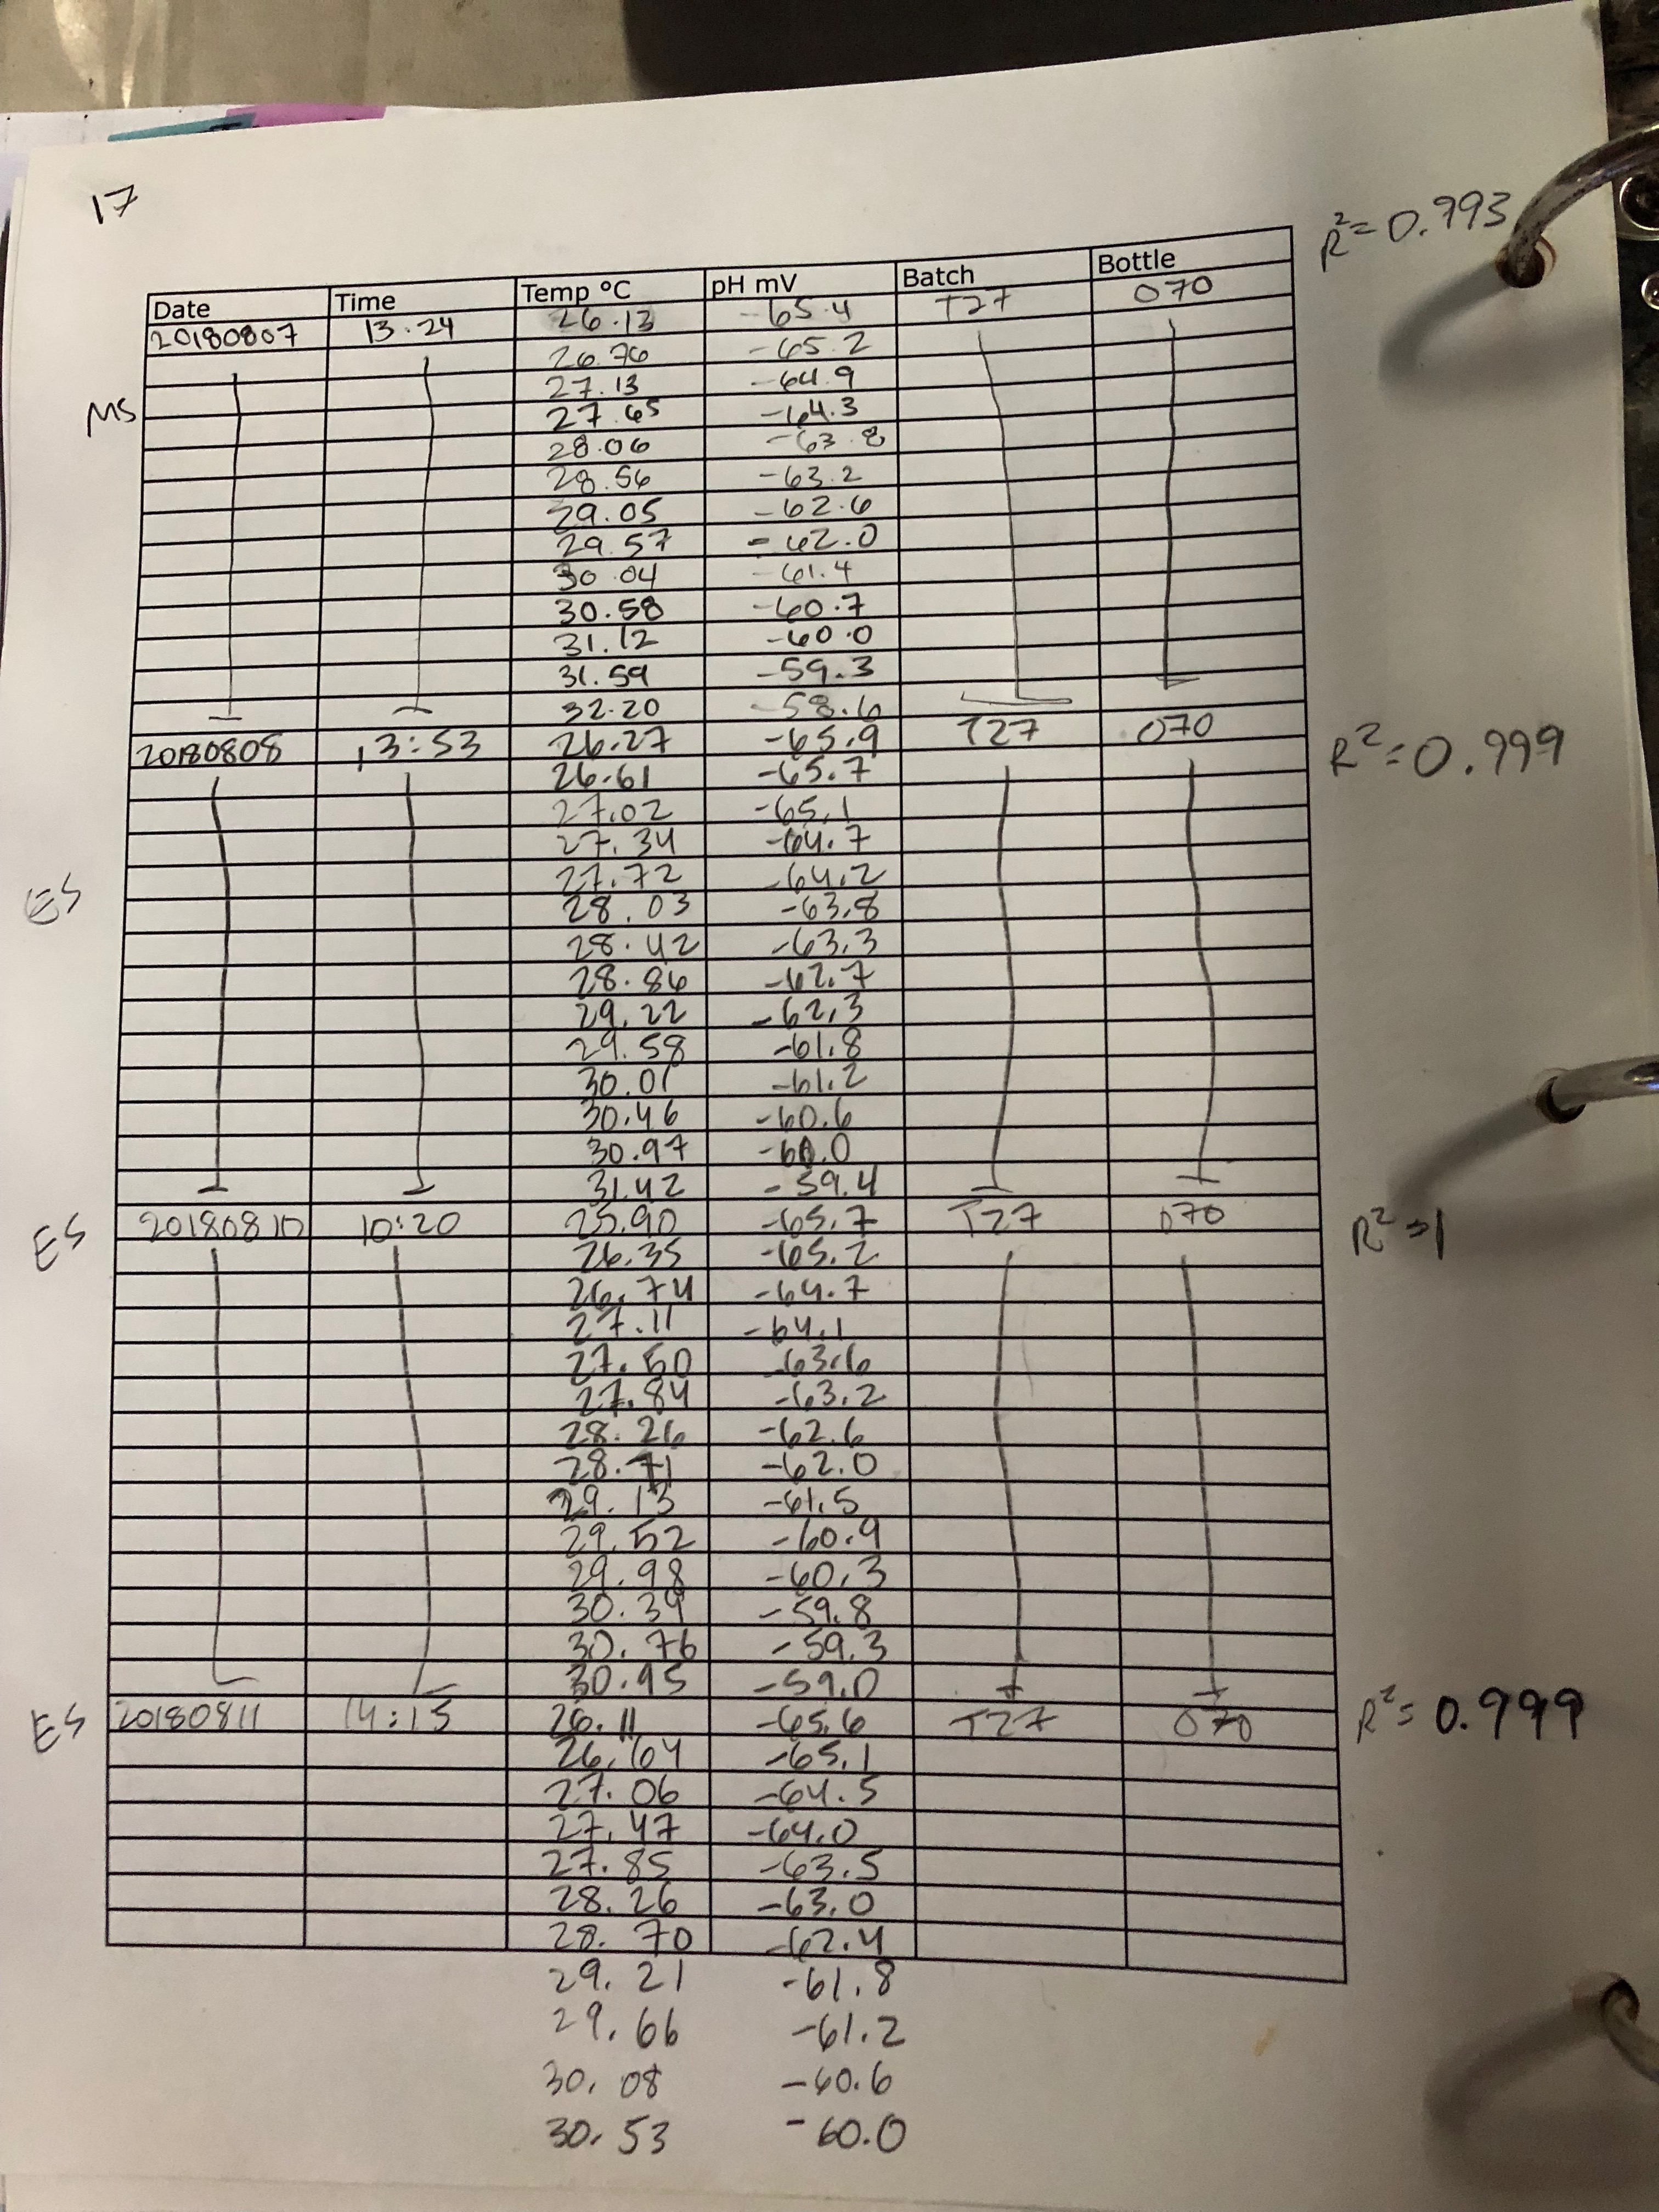 17
R²=0.993
Date Time Temp ºC pH mV Batch Bottle
20180807 13:24 26.13 -65.4 T27 070
26.76 -65.2
27.13 -64.9
MS 27.65 -64.3
28.06 -63.8
28.56 -63.2
29.05 -62.6
29.57 -62.0
30.04 -61.4
30.58 -60.7
31.12 -60.0
31.59 -59.3
32.20 -58.6
20180808 13:53 26.27 -65.9 T27 070 R²=0.999
26.61 -65.7
27.02 -65.1
27.34 -64.7
27.72 -64.2
ES 28.03 -63.8
28.42 -63.3
28.86 -62.7
29.22 -62.3
29.58 -61.8
30.01 -61.2
30.46 -60.6
30.97 -60.0
31.42 -59.4
ES 20180810 10:20 25.90 -65.7 T27 070 R²=1
26.35 -65.2
26.74 -64.7
27.11 -64.1
27.50 -63.6
27.84 -63.2
28.26 -62.6
28.71 -62.0
29.13 -61.5
29.52 -60.9
29.98 -60.3
30.39 -59.8
30.76 -59.3
30.95 -59.0
ES 20180811 14:15 26.11 -65.6 T27 070 R²=0.999
26.64 -65.1
27.06 -64.5
27.47 -64.0
27.85 -63.5
28.26 -63.0
28.70 -62.4
29.21 -61.8
29.66 -61.2
30.08 -60.6
30.53 -60.0